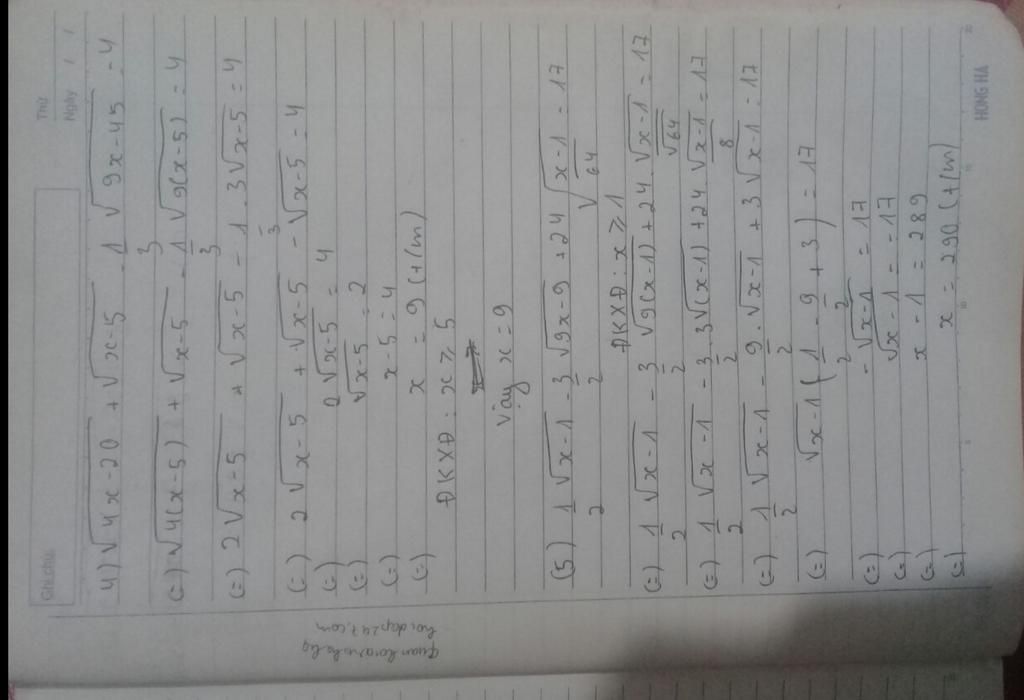 Thứ
Ngày / /
Ghi chú:
4) √4x-20 + √x-5 - 1/3 √9x-45 = 4
(=) √4(x-5) + √x-5 - 1/3 √9(x-5) = 4
(=) 2√x-5 + √x-5 - 1/3 . 3√x-5 = 4
(=) 2√x-5 + √x-5 - √x-5 = 4
(=) 2√x-5 = 4
(=) √x-5 = 2
(=) x-5 = 4
(=) x = 9 (t/m)
ĐKXĐ: x ≥ 5
Vậy x = 9
(5) 1/2 √x-1 - 3/2 √9x-9 + 24 √(x-1)/64 = 17
ĐKXĐ: x ≥ 1
(=) 1/2 √x-1 - 3/2 √9(x-1) + 24 . √x-1/√64 = 17
(=) 1/2 √x-1 - 3/2 . 3√(x-1) + 24 √x-1/8 = 17
(=) 1/2 √x-1 - 9/2 . √x-1 + 3√x-1 = 17
(=) √x-1 (1/2 - 9/2 + 3) = 17
(=) -√x-1 = 17
(=) √x-1 = -17
(=) x-1 = 289
(=) x = 290 (t/m)
hoidap247.com
HONG HA